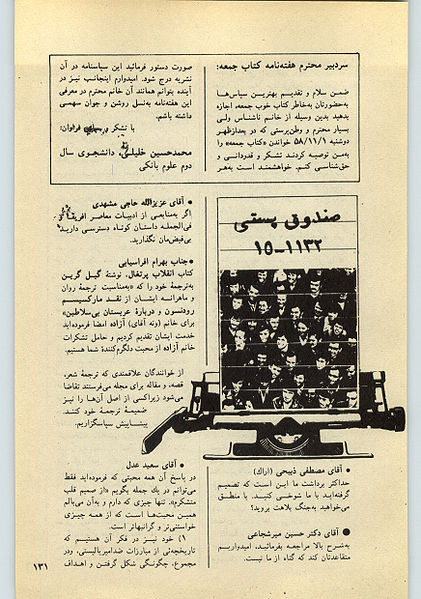 سردبیر محترم هفته‌نامه کتاب جمعه:
ضمن سلام و تقدیم بهترین سپاس‌ها
به‌حضورتان به‌خاطر کتاب خوب جمعه، اجازه
بدهید بدین وسیله از خانم ناشناس ولی
بسیار محترم و وطن‌پرستی که در بعدازظهر
دوشنبه ۵۸/۱۱/۱ خواندن «کتاب جمعه» را
به‌من توصیه کردند تشکر و قدردانی و
حق‌شناسی کنم. خواهشمند است به‌هر
صورت دستور فرمائید این سپاسنامه در آن
نشریه درج شود. امیدوارم اینجانب نیز در
آینده بتوانم همانند آن خانم محترم در معرفی
این هفته‌نامه به‌نسل روشن و جوان سهمی
داشته باشم.
با تشکر و سپاس فراوان:
محمدحسین خلیلی، دانشجوی سال
دوم علوم بانکی
صندوق پستی
۱۵-۱۱۳۲
● آقای مصطفی ذبیحی (اراک)
حداکثر برداشت ما این است که تصمیم
گرفته‌اید با ما شوخی کنید. با منطق
می‌خواهید به‌جنگ بلاهت بروید؟
● آقای دکتر حسین میرشجاعی
به‌شرح بالا مراجعه بفرمائید. امیدواریم
متقاعدتان کند که گناه از ما نیست.
● آقای عزیزالله حاجی مشهدی
اگر به‌منابعی از ادبیات معاصر افریقا و
فی‌الجمله داستان کوتاه دسترسی دارید
بی‌فیض‌مان نگذارید.
● جناب بهرام افراسیابی
کتاب انقلاب پرتغال. نوشتهٔ گیل گرین
به‌ترجمهٔ خود را که «به‌مناسبت ترجمهٔ روان
و ماهرانه ایشان از نقد مارکسیسم
رودنسون و دربارهٔ عربستان بی‌سلاطین»
برای خانم (ونه آقای) آزاده امضا فرموده‌اید
خدمت ایشان تقدیم کردیم و حامل تشکرات
خانم آزاده از محبت دلگرم‌کنندهٔ شما هستیم.
از خوانندگان علاقمندی که ترجمهٔ شعر،
قصه، و مقاله برای مجله می‌فرستند تقاضا
می‌شود زیراکسی از اصل آن‌ها را نیز
ضمیمهٔ ترجمهٔ خود کنند.
پیشاپیش سپاسگزاریم.
● آقای سعید عدل
در پاسخ آن همه محبتی که فرموده‌اید فقط
می‌توانم در یك جمله بگویم «از صمیم قلب
متشکرم». تنها چیزی که دارم و به‌آن می‌بالم
همین محبت‌ها است که از همه چیزی
خواستنی‌تر و گرانبهاتر است.
۱) خود نیز در فکر آن هستیم که
تاریخچه‌ئی از مبارزات ضدامپریالیستی، ودر
مجموع، چگونگی شکل گرفتن و اهداف
۱۳۱